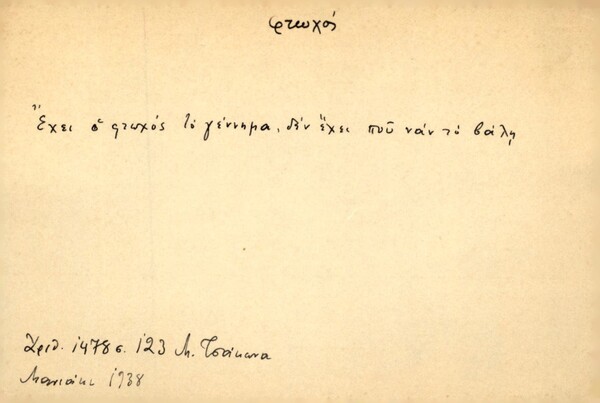 φτωχός
Ἔχει ὁ φτωχός τό γέννημα, δέν ἔχει ποῦ νάν τό βάλῃ
Ἀριθ. 1478 σ. 123 Μ. Τσάκωνα
Μανιάκι 1938